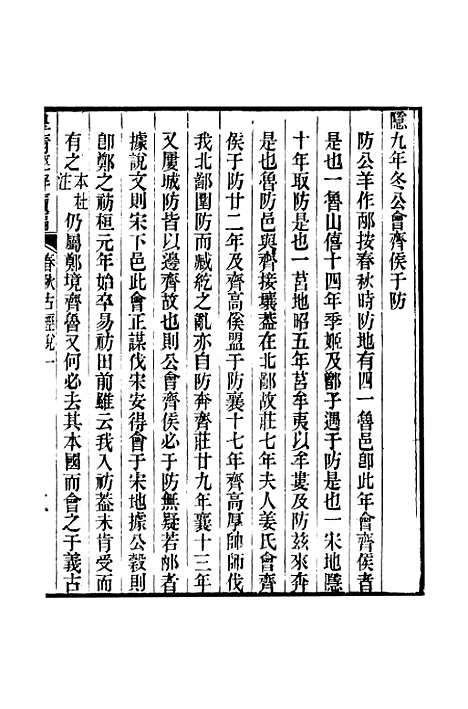 隱九年冬公會齊侯于防
防公羊作邴按春秋時防地有四一魯邑卽此年會齊侯者
是也一魯山僖十四年季姬及鄫子遇于防是也一宋地隱
十年取防是也一莒地昭五年莒牟夷以牟婁及防兹來奔
是也魯防邑與齊接壤蓋在北鄙故莊七年夫人姜氏會齊
侯于防廿二年及齊高傒盟于防襄十七年齊高厚帥師伐
我北鄙圍防而臧紇之亂亦自防奔齊莊廿九年襄十三年
又屢城防皆以邊齊故也則公會齊侯必于防無疑若邴者
據說文則宋下邑此會正謀伐宋安得會于宋地據公穀則
卽鄭之祊桓元年始卒易祊田前雖云我入祊蓋未肯受而
有之本杜注仍屬鄭境齊魯又何必去其本國而會之于義古
皇清經解續編 春秋古經說一